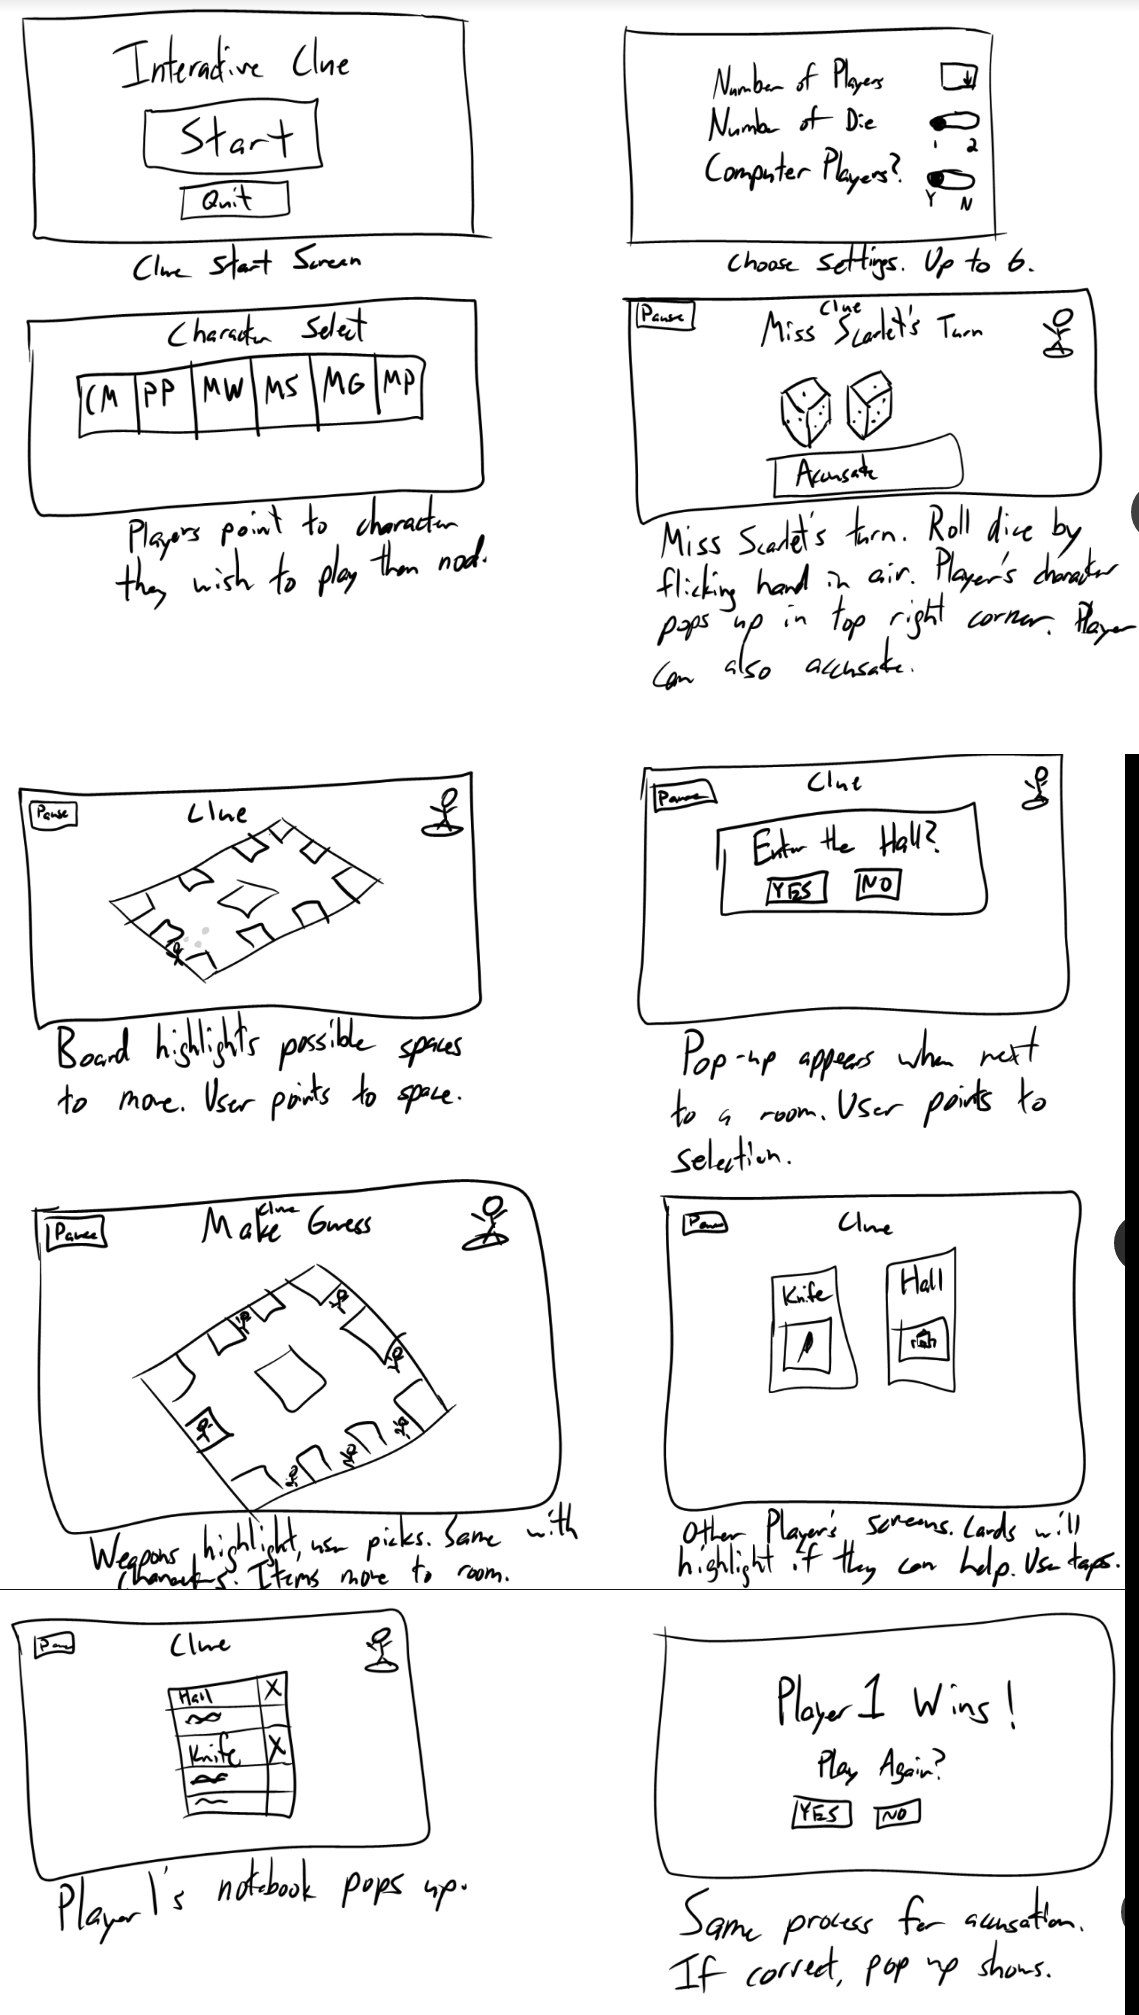 Interactive Clue
Start
Quit
Clue Start Screen
Number of Players
Number of Die
1 2
Computer Players?
Y N
Choose settings. Up to 6.
Character Select
CM PP MW MS MG MP
Players point to character
they wish to play then nod.
Pause
Clue
Miss Scarlet's Turn
Accusate
Miss Scarlet's turn. Roll dice by
flicking hand in air. Player's character
pops up in top right corner. Player
can also accusate.
Pause
Clue
Board highlights possible spaces
to move. User points to space.
Pause
Clue
Enter the Hall?
YES NO
Pop-up appears when next
to a room. User points to
selection.
Pause
Clue
Make Guess
Weapons highlight, user picks. Same with
Characters. Items move to room.
Pause
Clue
Knife
Hall
Other Player's screens. Cards will
highlight if they can help. User taps.
Pause
Clue
Hall X
Knife X
Player 1's notebook pops up.
Player 1 Wins!
Play Again?
YES NO
Same process for accusation.
If correct, pop up shows.